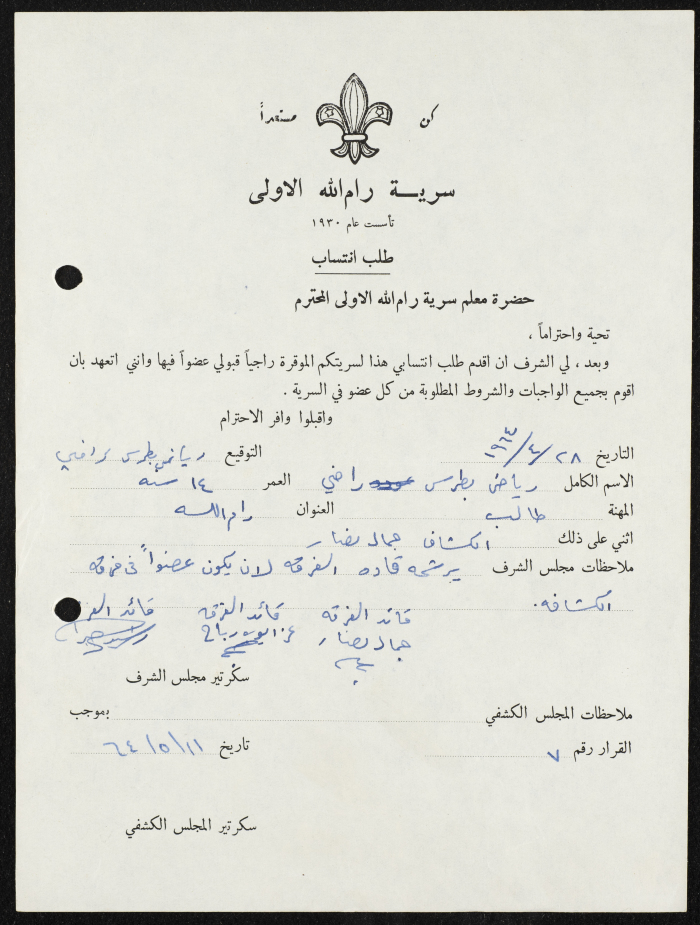 كن مستعداً
سرية رام الله الاولى
تأسست عام ١٩٣٠
طلب انتساب
حضرة معلم سرية رام الله الاولى المحترم
تحية واحتراماً ،
وبعد ، لي الشرف ان اقدم طلب انتسابي هذا لسريتكم الموقرة راجياً قبولي عضواً فيها وانني اتعهد بان
اقوم بجميع الواجبات والشروط المطلوبة من كل عضو في السرية .
واقبلوا وافر الاحترام
التاريخ ٢٨/٤/١٩٦٣ التوقيع رياض بطرس راضي
الاسم الكامل رياض بطرس راضي العمر ١٤ سنه
المهنة طالب العنوان رام الله
اثني على ذلك الكشاف جمال نصار
ملاحظات مجلس الشرف يرشحه قاده الفرقه لان يكون عضواً في فرقه
الكشافه.
قائد الفرقه قائد الفرقه قائد الفرقه
جمال نصار
سكرتير مجلس الشرف
ملاحظات المجلس الكشفي بموجب
القرار رقم ٧ تاريخ ١١/٥/٦٤
سكرتير المجلس الكشفي